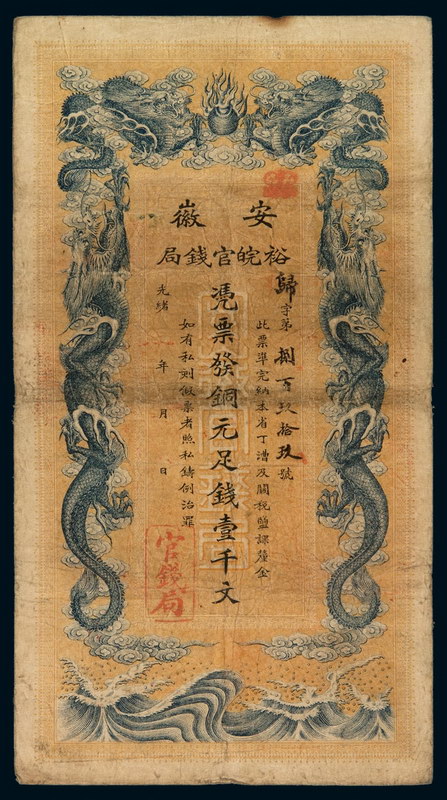 安徽
裕皖官錢局
歸字第捌百玖拾玖號
此票準完納本省丁漕及關稅鹽課釐金
憑票發銅元足錢壹千文
如有私刻假票者照私鑄例治罪
光緒 年 月 日
官錢局